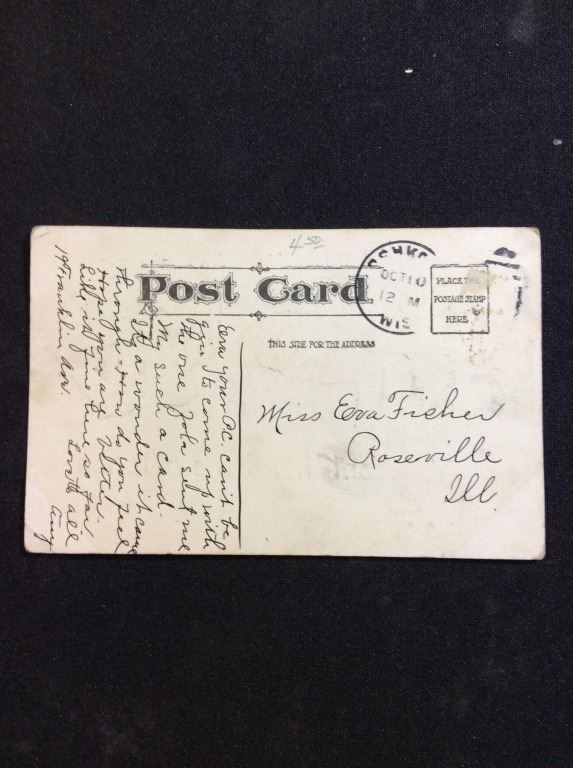 4.50
Post Card
OSHKO
OCT 10
12 M
WIS
PLACE THE
POSTAGE STAMP
HERE
THIS SIDE FOR THE ADDRESS
Miss Eva Fisher
Roseville
Ill.
Eva your P.C. can't be
to come up with
the one Zola sent me
My such a card.
It's a wonder it came
through. How do you feel
Hope you are
Like it fine here so far
Love to all
Amy
Franklin Ave.